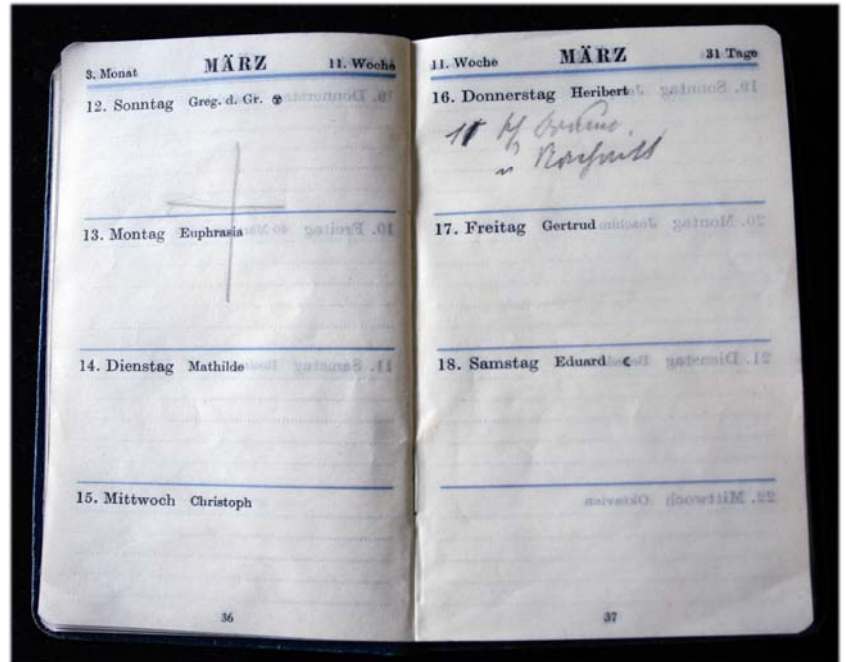 3. Monat MÄRZ 11. Woche
12. Sonntag Greg. d. Gr.
13. Montag Euphrasia
14. Dienstag Mathilde
15. Mittwoch Christoph
36
11. Woche MÄRZ 31 Tage
16. Donnerstag Heribert
11
17. Freitag Gertrud
18. Samstag Eduard ☾
37